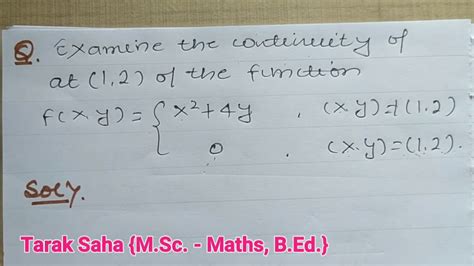 Q. Examine the continuity of
at (1,2) of the function
f(x,y) = { x²+4y , (x,y)≠(1,2)
0 . (x,y)=(1,2).
Soln.
Tarak Saha {M.Sc. - Maths, B.Ed.}